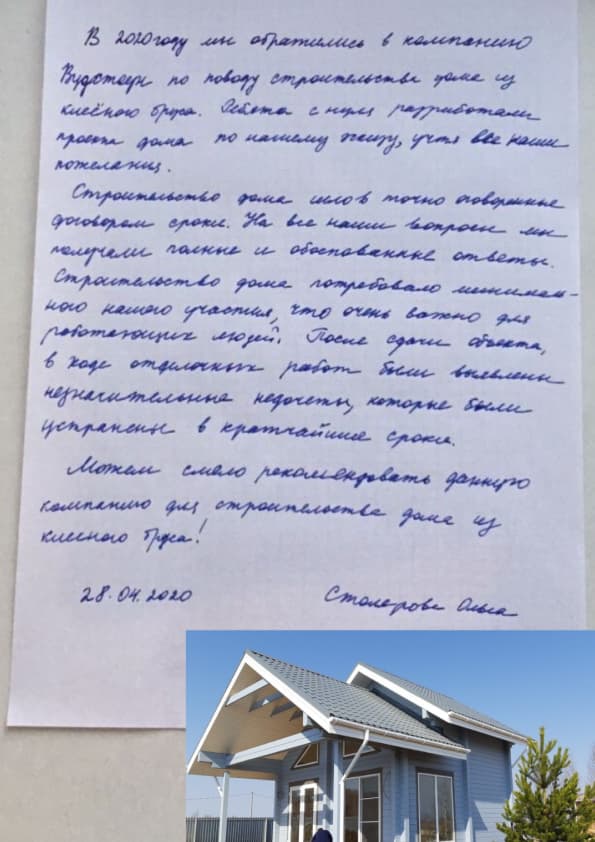 В 2020 году мы обратились в компанию
Вудстоун по поводу строительства дома из
клеёного бруса. Ребята с нуля разработали
проект дома по нашему эскизу, учтя все наши
пожелания.
Строительство дома шло в точно оговоренные
договором сроки. На все наши вопросы мы
получали полные и обоснованные ответы.
Строительство дома потребовало минималь-
ного нашего участия, что очень важно для
работающих людей. После сдачи объекта,
в ходе отделочных работ были выявлены
незначительные недочеты, которые были
устранены в кратчайшие сроки.
Можем смело рекомендовать данную
компанию для строительства дома из
клееного бруса!
28.04.2020 Столерова Ольга